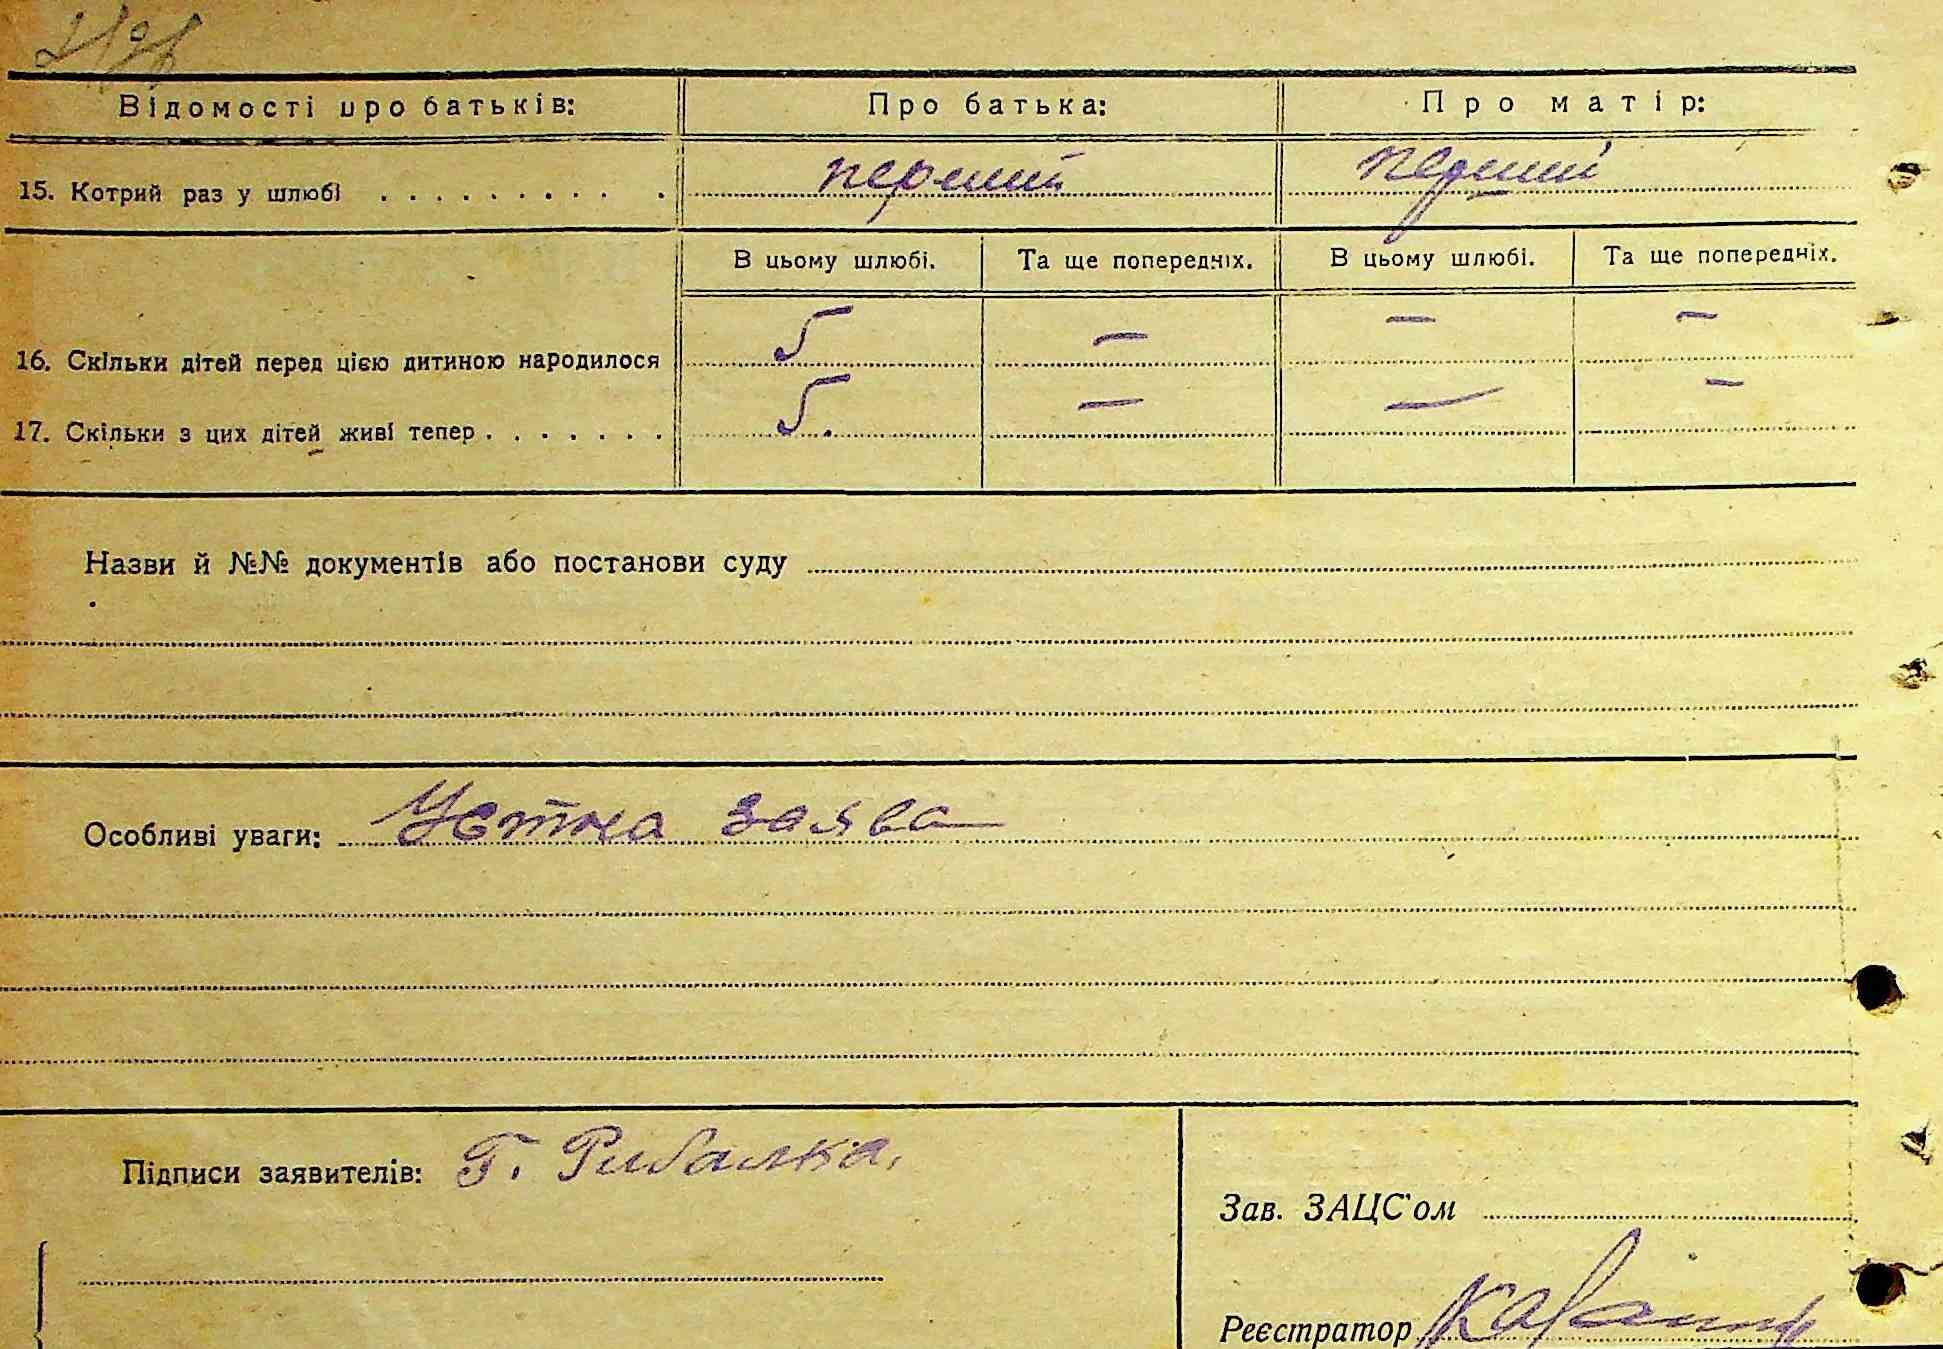 Відомості про батьків: Про батька: Про матір:
15. Котрий раз у шлюбі . . . . . . . . . . перший перший
В цьому шлюбі. Та ще попередніх. В цьому шлюбі. Та ще попередніх.
16. Скільки дітей перед цією дитиною народилося 5 — — —
17. Скільки з цих дітей живі тепер . . . . . . . 5. — — —
Назви й №№ документів або постанови суду
Особливі уваги: Устна заява
Підписи заявителів: Г. Рибалка.
Зав. ЗАЦС'ом
Реєстратор